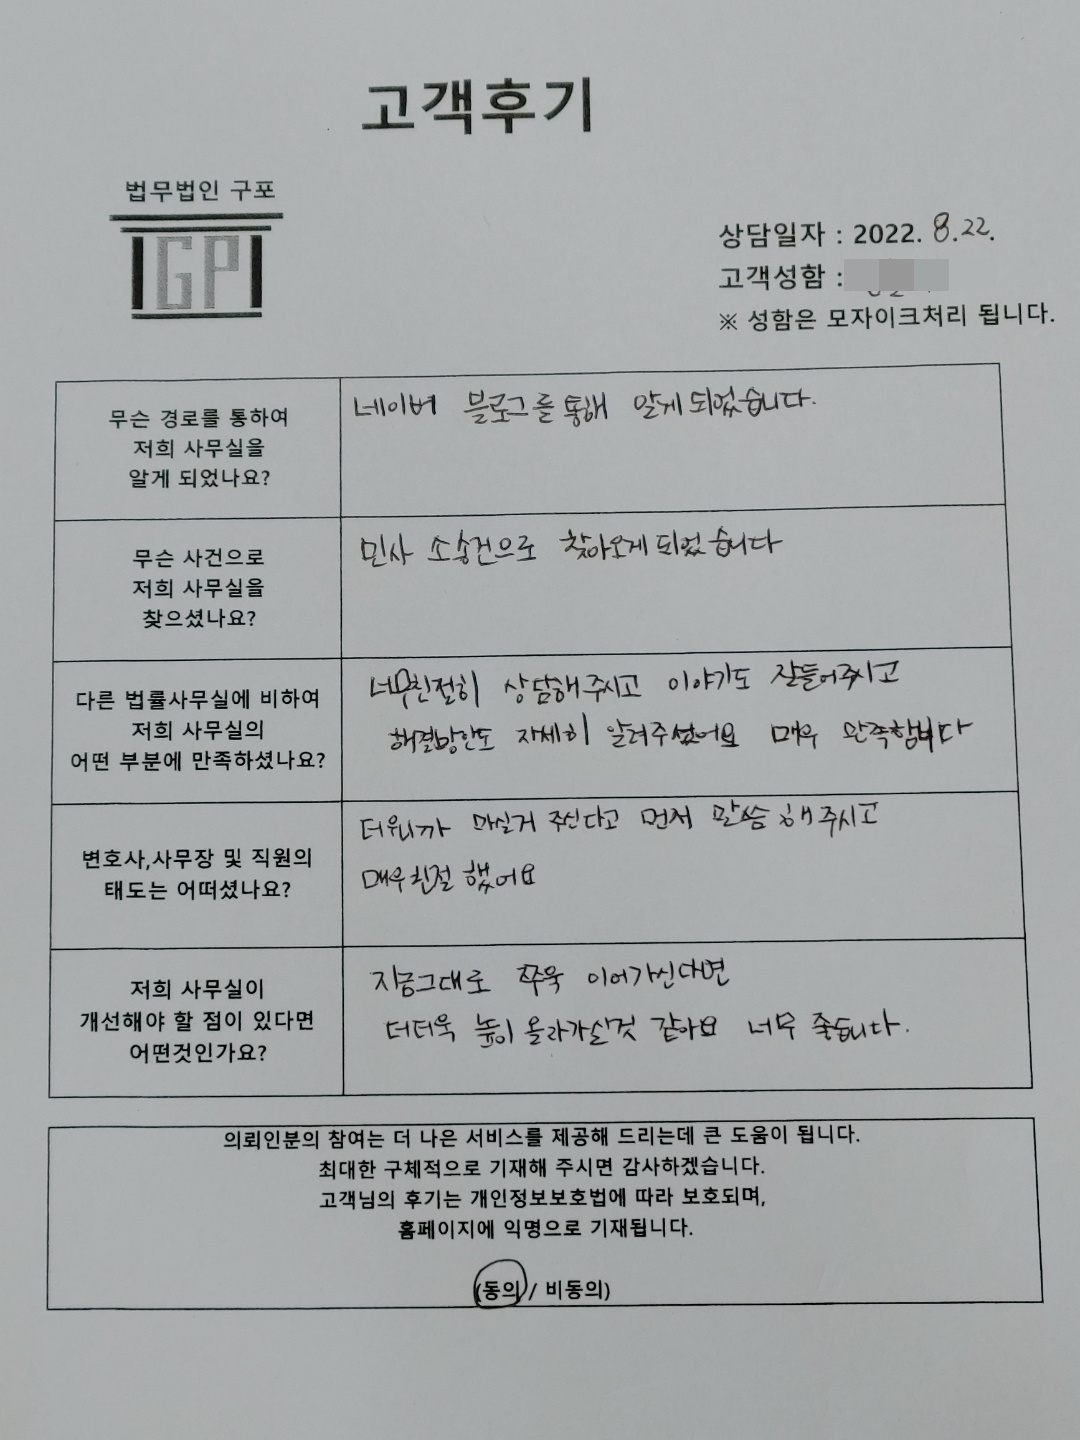 고객후기
법무법인 구포
GP
상담일자 : 2022. 8.22.
고객성함 :
※ 성함은 모자이크처리 됩니다.
무슨 경로를 통하여
저희 사무실을
알게 되었나요?
네이버 블로그를 통해 알게 되었습니다.
무슨 사건으로
저희 사무실을
찾으셨나요?
민사 소송건으로 찾아오게 되었습니다
다른 법률사무실에 비하여
저희 사무실의
어떤 부분에 만족하셨나요?
너무친절히 상담해주시고 이야기도 잘들어주시고
해결방안도 자세히 알려주셨어요 매우 만족합니다
변호사,사무장 및 직원의
태도는 어떠셨나요?
더우니까 마실거 주신다고 먼저 말씀해주시고
매우친절 했어요
저희 사무실이
개선해야 할 점이 있다면
어떤것인가요?
지금그대로 쭈욱 이어가신다면
더더욱 높이 올라가실것 같아요 너무 좋습니다.
의뢰인분의 참여는 더 나은 서비스를 제공해 드리는데 큰 도움이 됩니다.
최대한 구체적으로 기재해 주시면 감사하겠습니다.
고객님의 후기는 개인정보보호법에 따라 보호되며,
홈페이지에 익명으로 기재됩니다.
(동의 / 비동의)